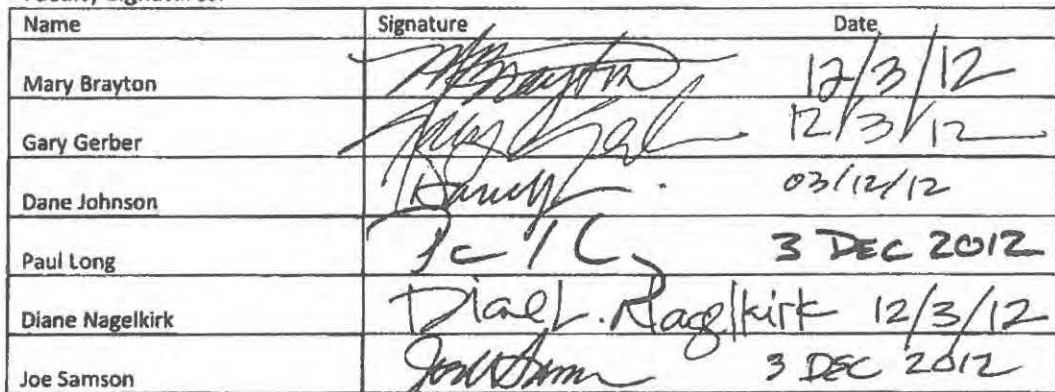 Faculty Signatures:
Name Signature Date
Mary Brayton MBrayton 12/3/12
Gary Gerber 12/3/12
Dane Johnson 03/12/12
Paul Long 3 DEC 2012
Diane Nagelkirk Diane L. Nagelkirk 12/3/12
Joe Samson 3 DEC 2012